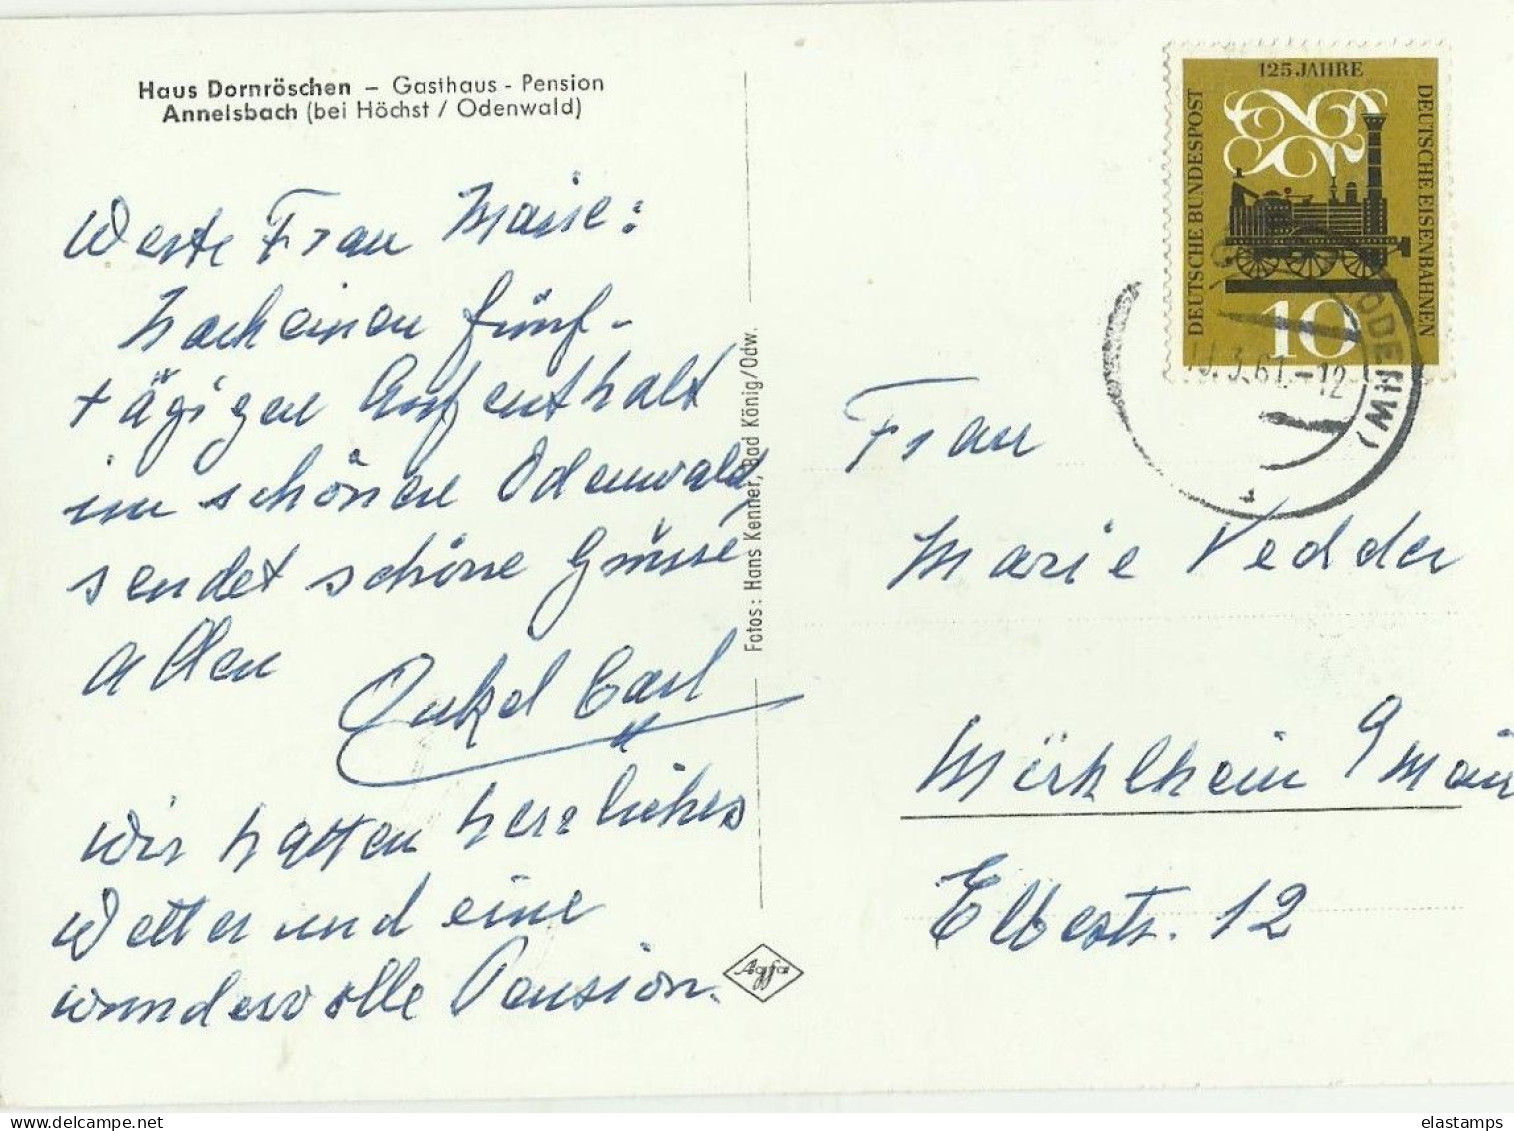 Haus Dornröschen – Gasthaus - Pension
Annelsbach (bei Höchst / Odenwald)
Werte Frau Marie:
Nach einen fünf-
tägigen Aufenthalt
im schönen Odenwald,
sendet schöne Grüsse
allen
Onkel Carl
Wir hatten herrliches
Wetter und eine
wundervolle Pension.
Fotos: Hans Kenner, Bad König/Odw.
Agfa
125 JAHRE
DEUTSCHE BUNDESPOST
DEUTSCHE EISENBAHNEN
10
(ODENW)
.3.61.-12
Frau
Marie Vedder
Mühlheim a/Main
Elbestr. 12
elastamps